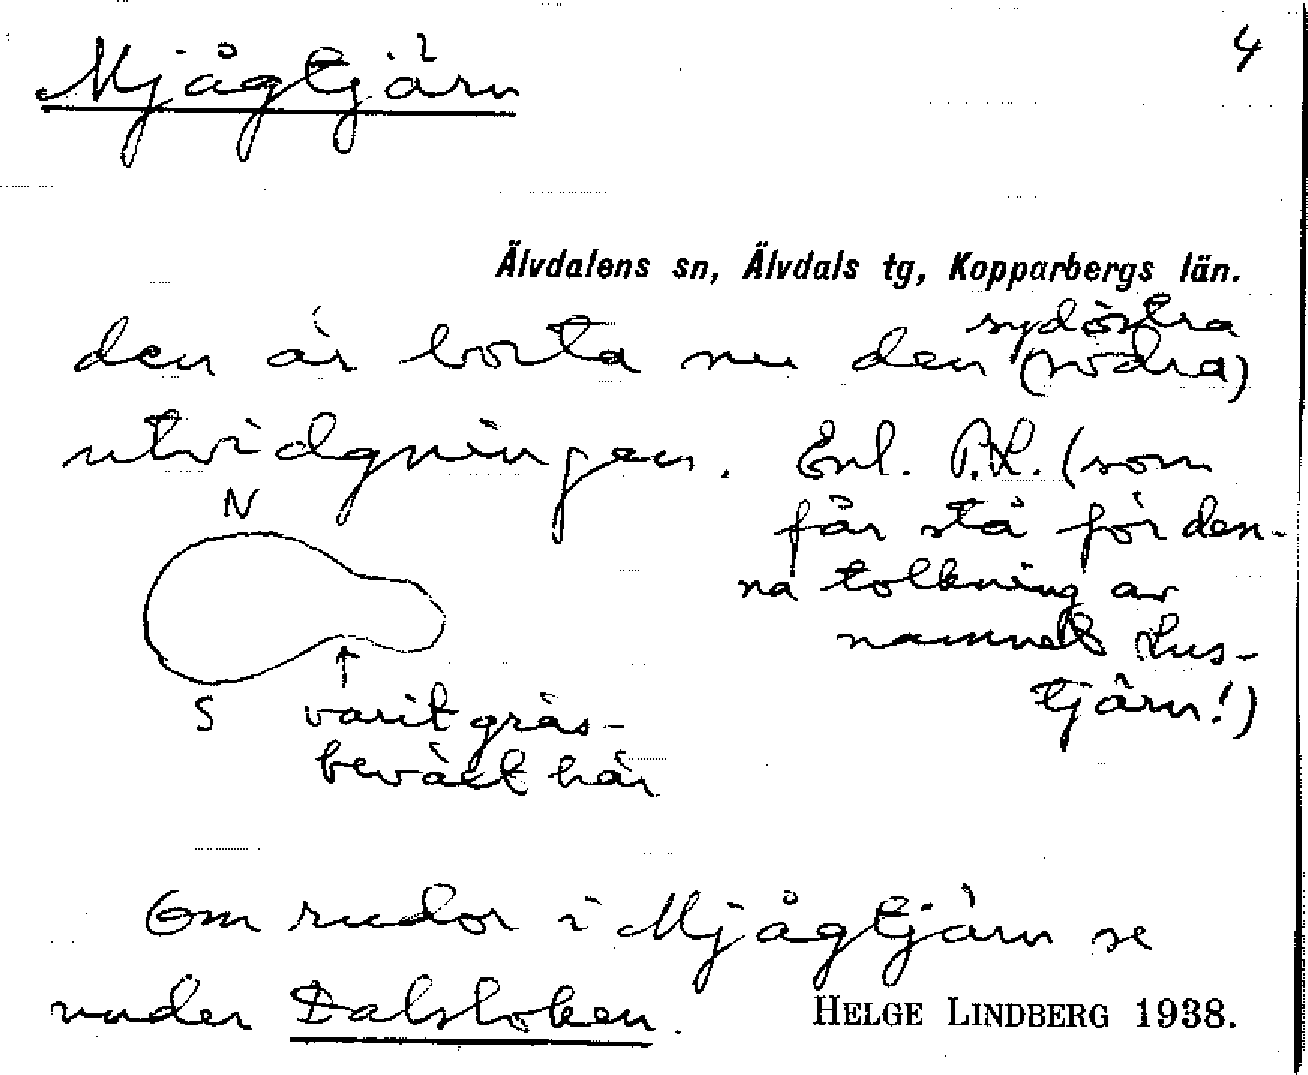 Mjågtjärn
4
Älvdalens sn, Älvdals tg, Kopparbergs län.
sydöstra
den är borta nu den (södra)
utvidgningen. Enl. P.L. (som
N
får stå för den-
na tolkning av
namnet Lus-
tjärn!)
S
varit gräs-
beväxt här
Om rudor i Mjågtjärn se
under Dalsloken.
HELGE LINDBERG 1938.